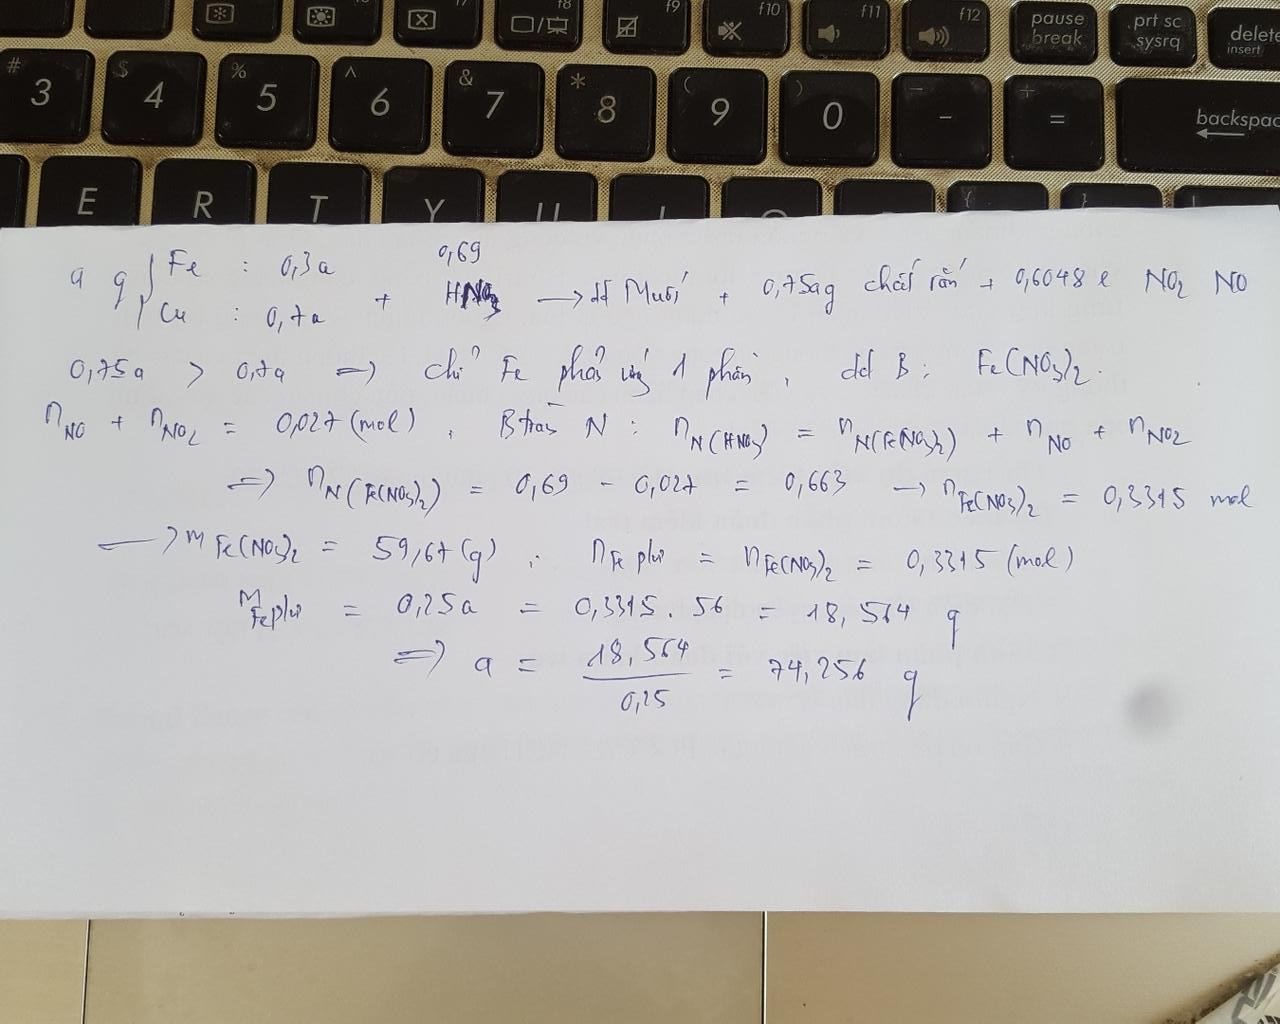 f8 f9 f10 f11 f12 pause break prt sc sysrq delete insert
# 3 $ 4 % 5 ^ 6 & 7 * 8 ( 9 ) 0 - + = backspac
E R T Y U { }
a g { Fe : 0,3a
Cu : 0,7a
+ 0,69 HNO3 → dd Muối + 0,75a g chất rắn + 0,6048 l NO2 NO
0,75a > 0,7a ⇒ chỉ Fe phản ứng 1 phần, dd B: Fe(NO3)2.
nNO + nNO2 = 0,027 (mol), Btoàn N: nN(HNO3) = nN(Fe(NO3)2) + nNO + nNO2
⇒ nN(Fe(NO3)2) = 0,69 - 0,027 = 0,663 → nFe(NO3)2 = 0,3315 mol
→ mFe(NO3)2 = 59,67 (g), nFe pứ = nFe(NO3)2 = 0,3315 (mol)
mFe pứ = 0,25a = 0,3315. 56 = 18,564 g
⇒ a = 18,564 / 0,25 = 74,256 g